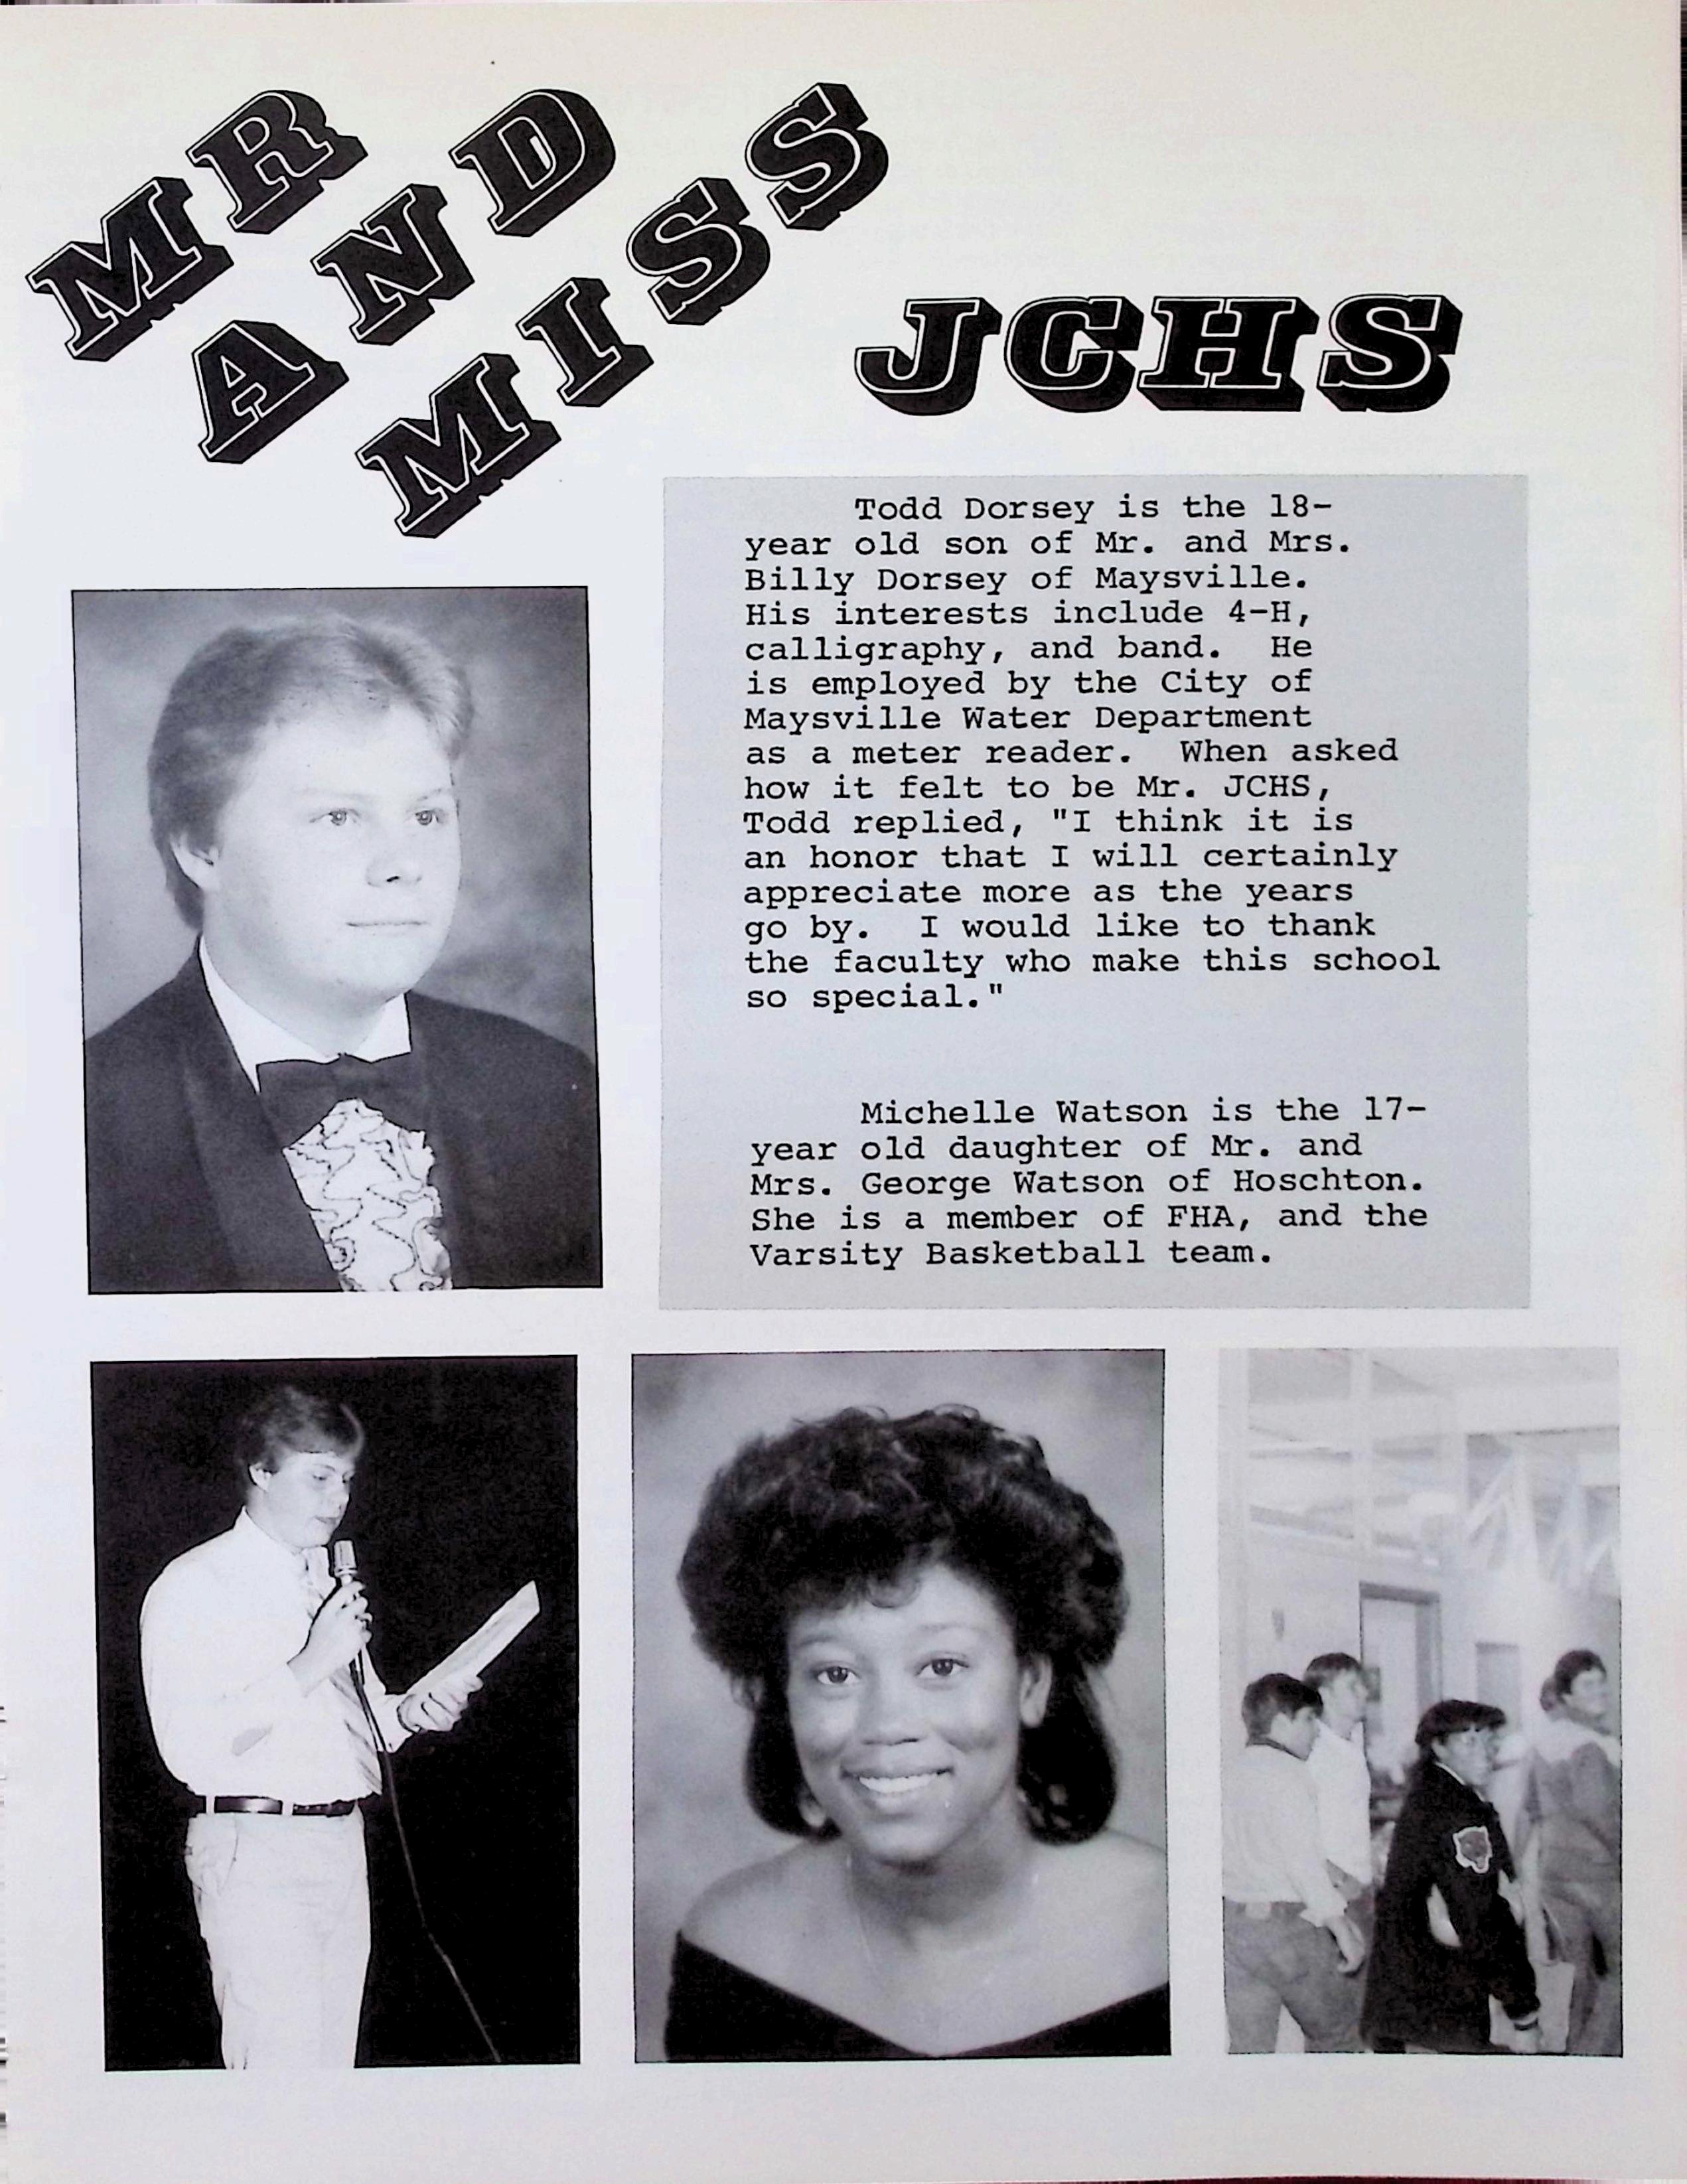 MR
AND
MISS
JCHS
Todd Dorsey is the 18-
year old son of Mr. and Mrs.
Billy Dorsey of Maysville.
His interests include 4-H,
calligraphy, and band.  He
is employed by the City of
Maysville Water Department
as a meter reader.  When asked
how it felt to be Mr. JCHS,
Todd replied, "I think it is
an honor that I will certainly
appreciate more as the years
go by.  I would like to thank
the faculty who make this school
so special."
Michelle Watson is the 17-
year old daughter of Mr. and
Mrs. George Watson of Hoschton.
She is a member of FHA, and the
Varsity Basketball team.